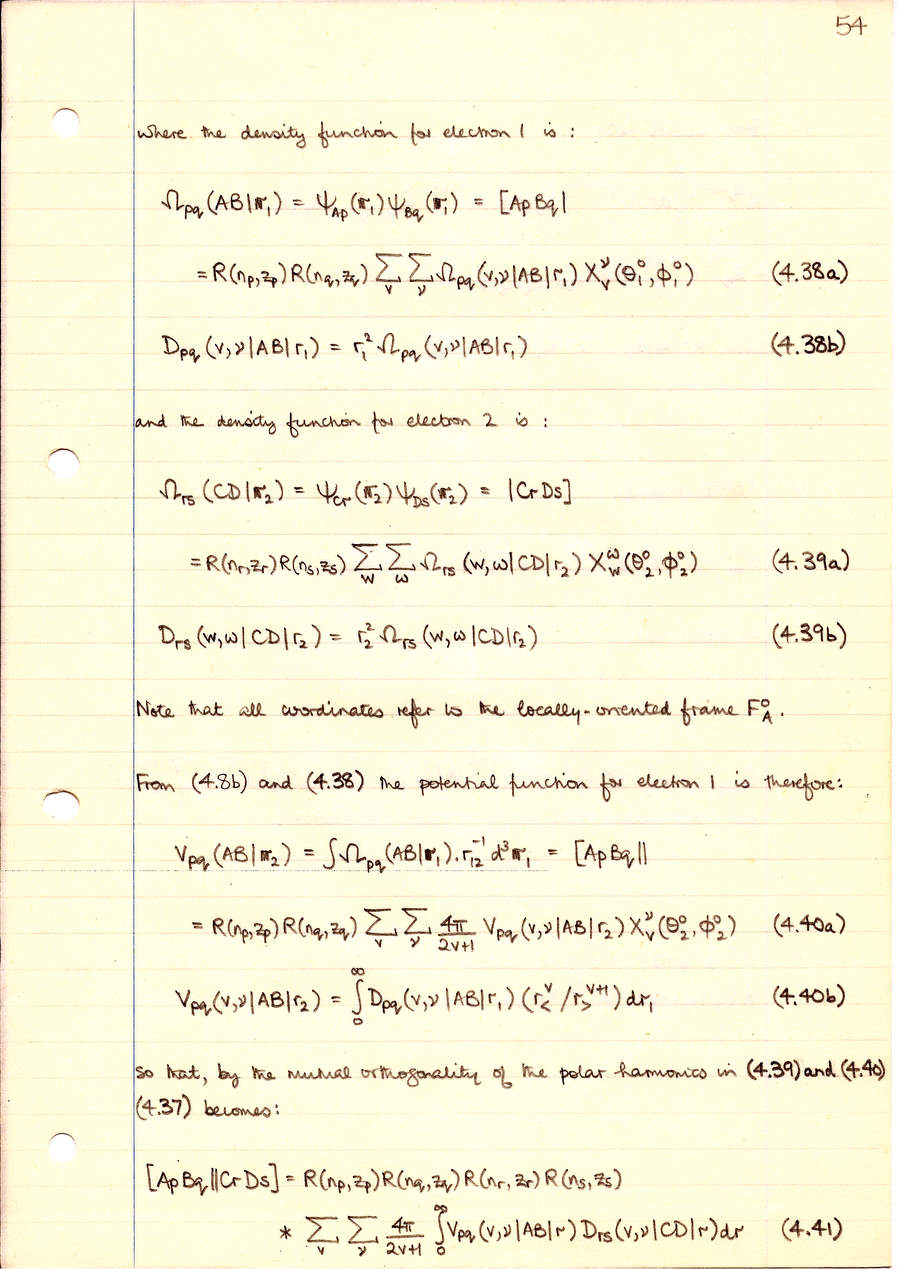 54
where the density function for electron 1 is :
Ω_pq (AB|r₁) = ψ_Ap (r₁) ψ_Bq (r₁) = [Ap Bq|
= R(n_p, z_p) R(n_q, z_q) Σ_v Σ_ν Ω_pq (v,ν|AB|r₁) X_v^ν (θ₁°, φ₁°) (4.38a)
D_pq (v,ν|AB|r₁) = r₁² Ω_pq (v,ν|AB|r₁) (4.38b)
and the density function for electron 2 is :
Ω_rs (CD|r₂) = ψ_Cr (r₂) ψ_Ds (r₂) = |Cr Ds]
= R(n_r, z_r) R(n_s, z_s) Σ_w Σ_ω Ω_rs (w,ω|CD|r₂) X_w^ω (θ₂°, φ₂°) (4.39a)
D_rs (w,ω|CD|r₂) = r₂² Ω_rs (w,ω|CD|r₂) (4.39b)
Note that all coordinates refer to the locally-oriented frame F_A°.
From (4.8b) and (4.38) the potential function for electron 1 is therefore:
V_pq (AB|r₂) = ∫ Ω_pq (AB|r₁) . r₁₂⁻¹ d³r₁ = [Ap Bq||
= R(n_p, z_p) R(n_q, z_q) Σ_v Σ_ν 4π/2v+1 V_pq (v,ν|AB|r₂) X_v^ν (θ₂°, φ₂°) (4.40a)
V_pq (v,ν|AB|r₂) = ∫₀^∞ D_pq (v,ν|AB|r₁) (r_<^v / r_>^v+1) dr₁ (4.40b)
so that, by the mutual orthogonality of the polar harmonics in (4.39) and (4.40)
(4.37) becomes:
[Ap Bq||Cr Ds] = R(n_p, z_p) R(n_q, z_q) R(n_r, z_r) R(n_s, z_s)
* Σ_v Σ_ν 4π/2v+1 ∫₀^∞ V_pq (v,ν|AB|r) D_rs (v,ν|CD|r) dr (4.41)